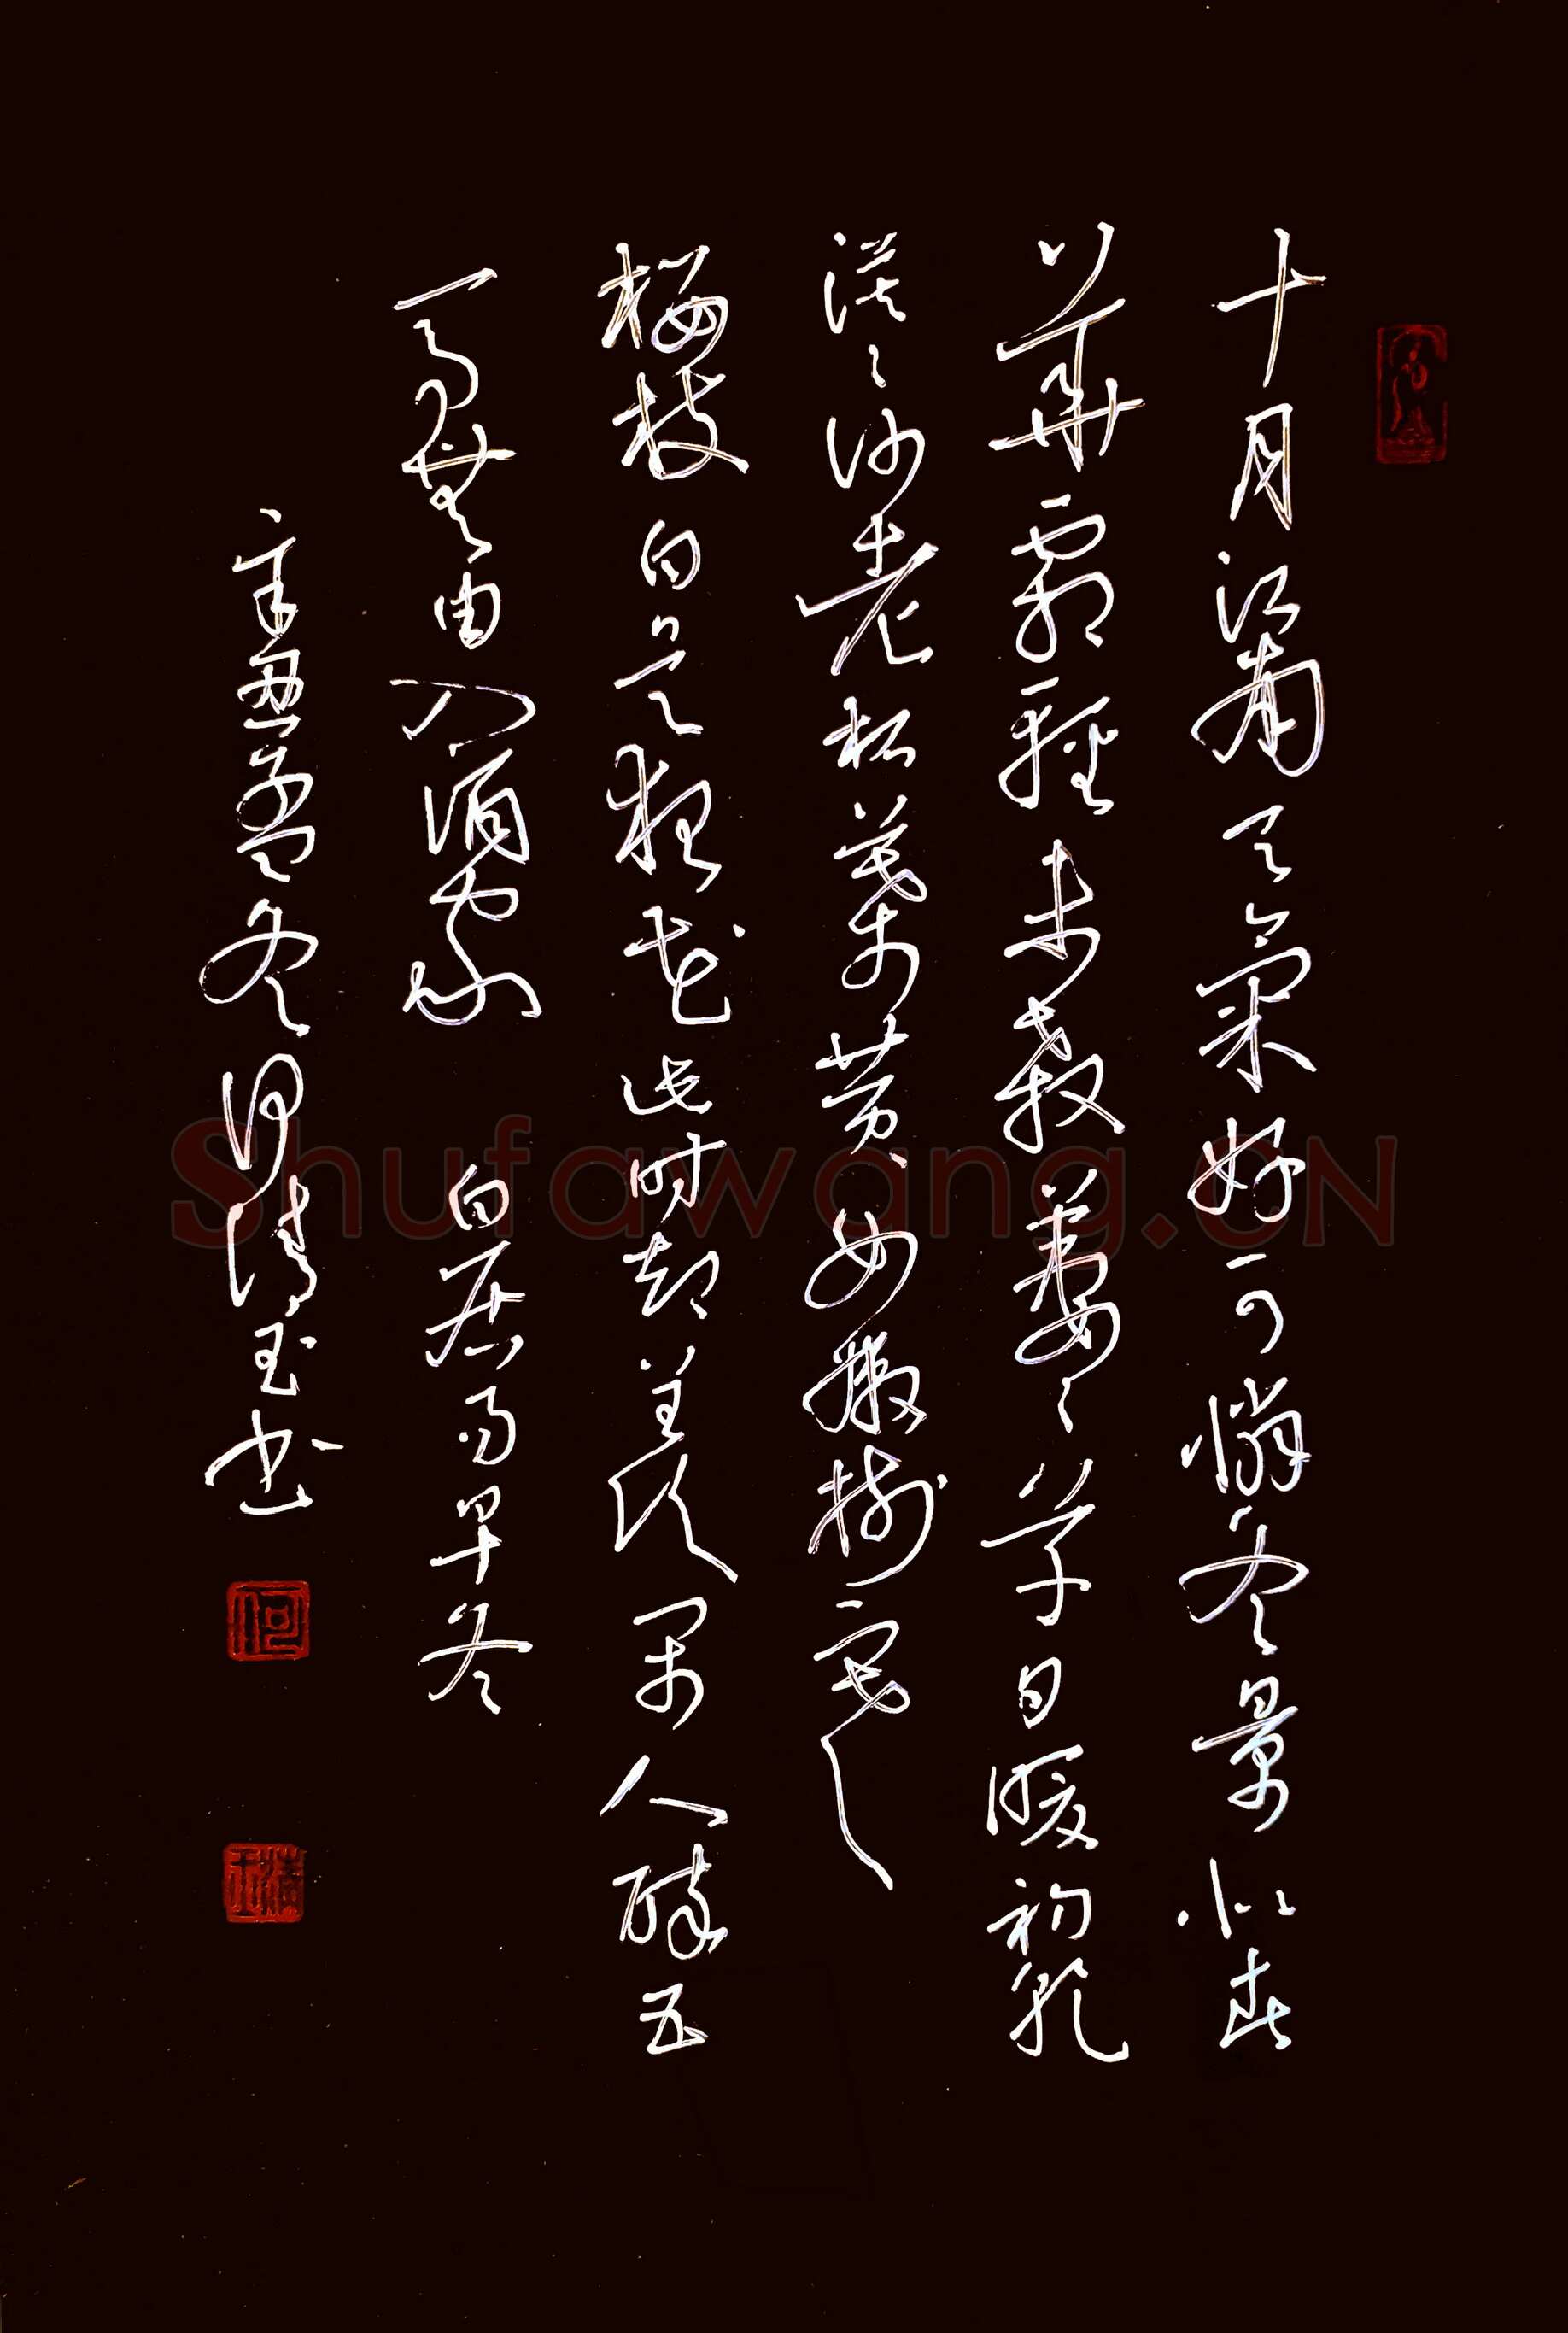 十月江南天氣好可憐冬景似春
華霜輕未殺萋々草日暖初乾
漠々沙老柘葉黄如嫩樹寒
櫻枝白是狂花此时却羡閑人醉五
馬無由入酒家 白居易早冬
辛丑孟冬何清玉书
何
Shufawang.CN